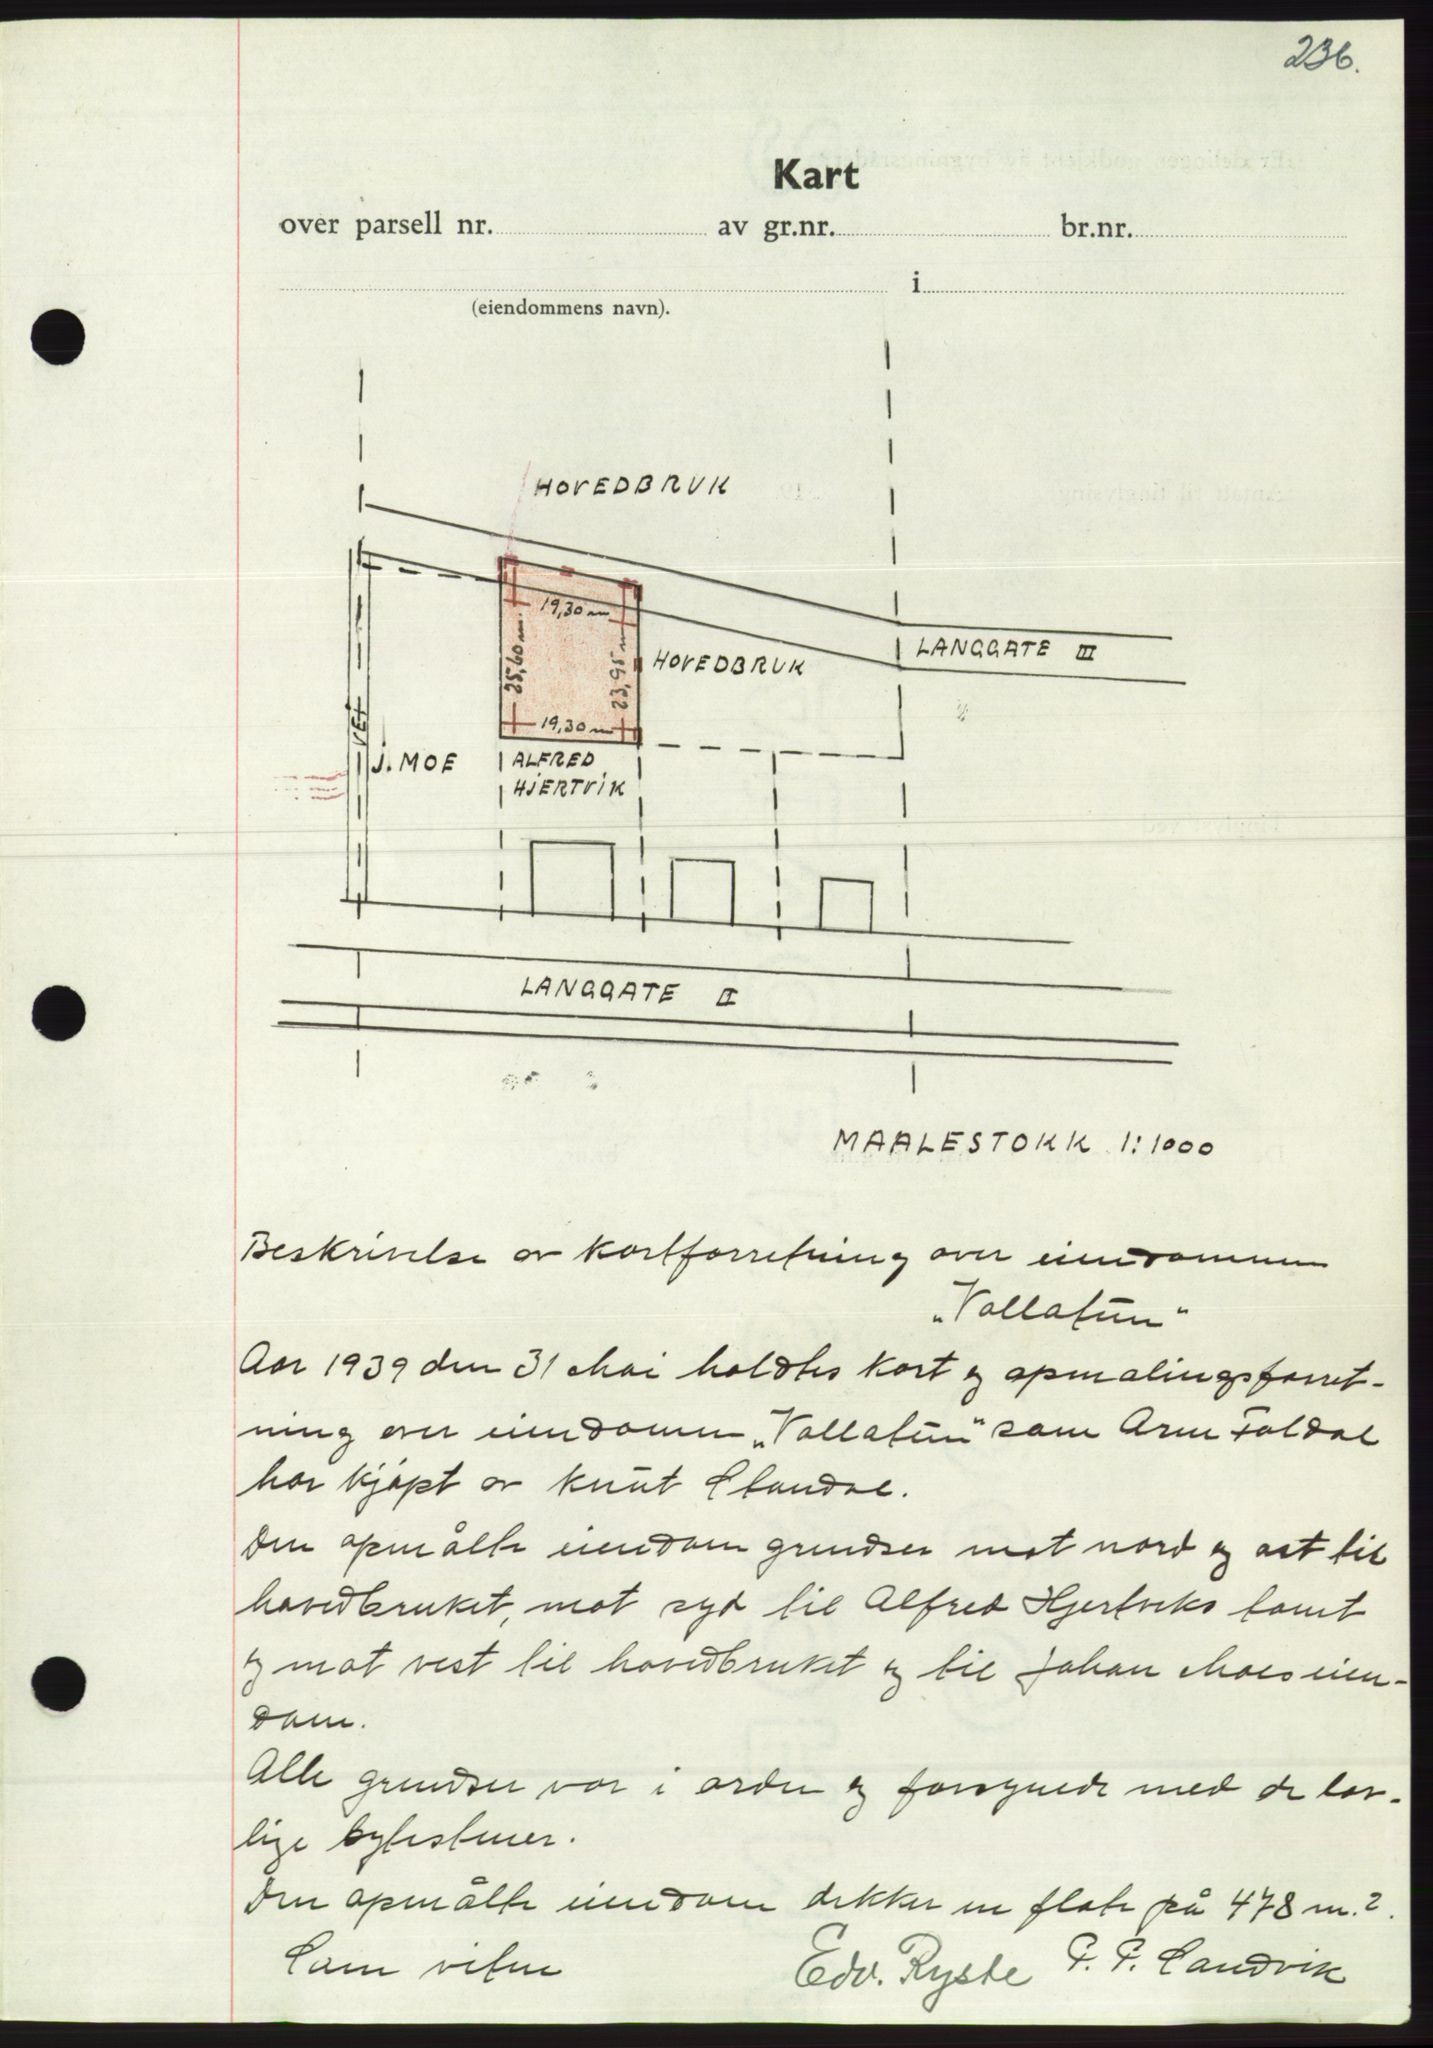 236.
Kart
over parsell nr. av gr.nr. br.nr.
i
(eiendommens navn).
HOVEDBRUK
19,30 m
25,60 m.
23,95 m
HOVEDBRUK
LANGGATE III
19,30 m
VEI
J. MOE
ALFRED
HJERTVIK
LANGGATE II
MAALESTOKK 1:1000
Beskrivelse av kartforretning over eiendommen
„Vollatun"
Aar 1939 den 31 Mai holdtes kart og opmalingsforret-
ning over eiendomen „Vollatun" som Arne Foldal
har kjøpt av Knut Standal.
Den opmålte eiendom grendser mot nord og øst til
hovedbruket, mot syd til Alfred Hjertviks tomt
og mot vest til hovedbruket og til Johan Moes eien-
dom.
Alle grendser var i orden og forsynede med de lov-
lige bytestener.
Den opmålte eiendom dekker en flate på 478 m.2.
Som vitne
Edv. Ryste P. P. Sandvik